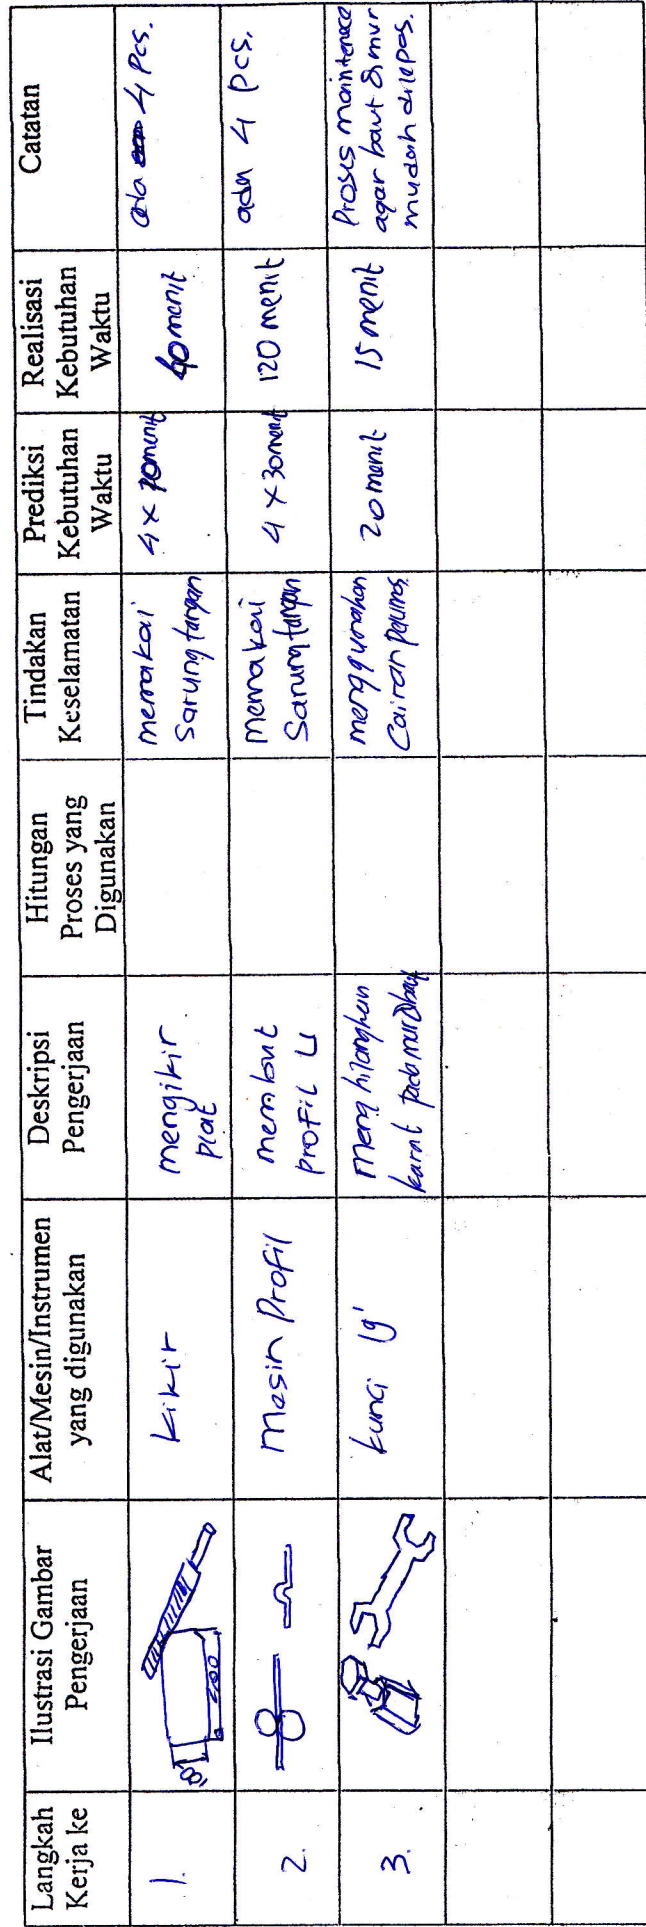 Langkah
Kerja ke
Ilustrasi Gambar
Pengerjaan
Alat/Mesin/Instrumen
yang digunakan
Deskripsi
Pengerjaan
Hitungan
Proses yang
Digunakan
Tindakan
Keselamatan
Prediksi
Kebutuhan
Waktu
Realisasi
Kebutuhan
Waktu
Catatan
1.
kikir
mengikir
plat
memakai
Sarung tangan
4 x 10 menit
40 menit
ada 4 Pcs.
2.
Mesin Profil
membuat
profil U
Memakai
Sarung tangan
4 x 30 menit
120 menit
ada 4 pcs.
3.
kunci 19'
Menghilangkan
karat pada mur & baut
menggunakan
Cairan pelumas
20 menit
15 menit
Proses maintenece
agar baut & mur
mudah dilepas.